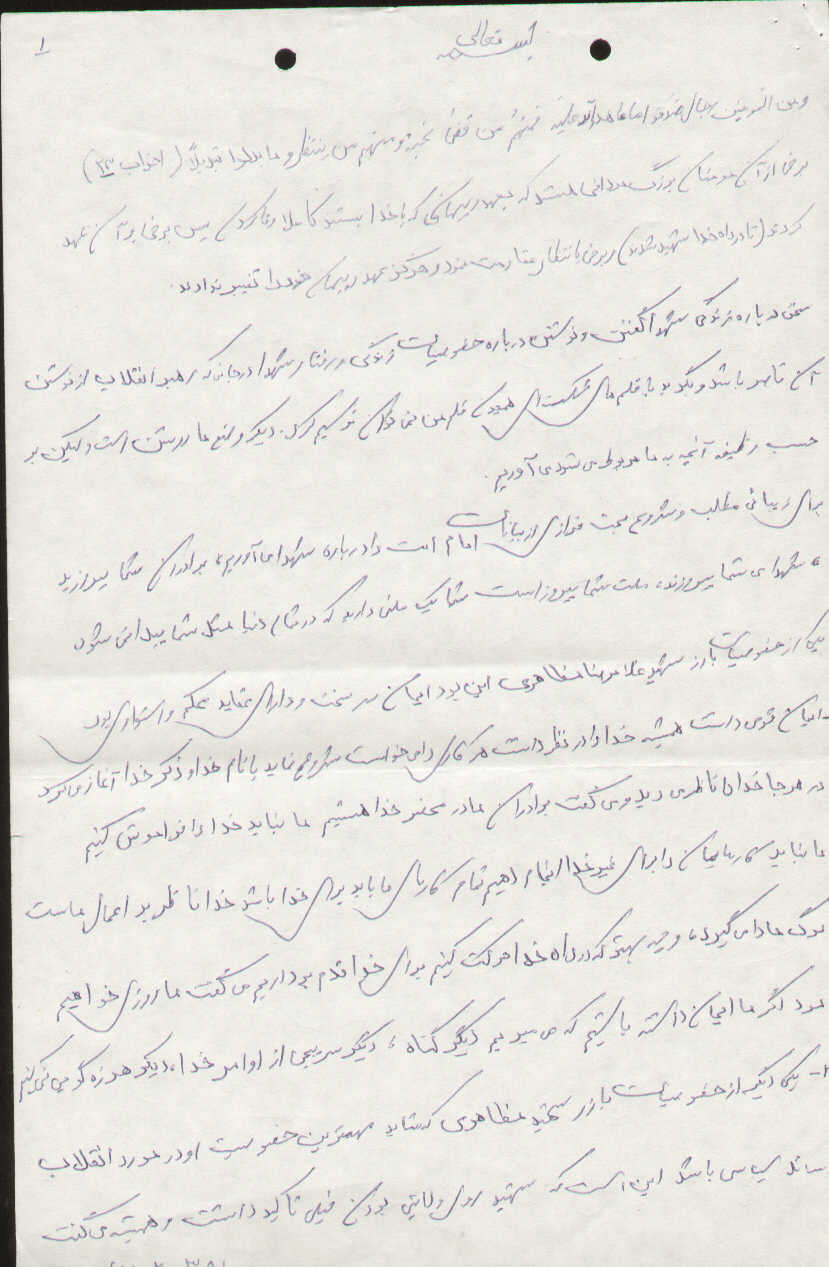 ۱
بسمه تعالی
ومن المومنین رجال صدقوا ما عاهدوا الله علیه فمنهم من قضی نحبه ومنهم من ینتظر وما بدلوا تبدیلاً (احزاب ۲۳)
برخی از آن مومنان بزرگ مردانی هستند که بعهد و پیمانی که با خدا بستند کاملا وفا کردند پس برخی بر آن عهد
کردند (تا در راه خدا شهید شدند) و برخی بانتظار مقاومت نمود و هرگز عهد و پیمان خود را تغییر ندادند.
سخن درباره زندگی شهدا گفتن و نوشتن درباره خصوصیات زندگی و رفتار شهدا درجائی که رهبر انقلاب از نوشتن
آن قاصر باشد و بگوید با قلم های شکسته ای همچون قلم من نمی توان ترسیم کرد. دیگر وضع ما روشن است ولیکن بر
حسب وظیفه آنچه به ما مربوط می شود می آوریم.
برای زیبائی مطلب و شروع صحبت فرازی از بیانات امام امت را درباره شهدا می آوریم، برادران شما پیروزید
، شهدای شما پیروزند، ملت شما پیروز است شما یک ملتی دارید که در تمام دنیا مثل شما پیدا نمی شود
یکی از خصوصیات بارز شهید غلامرضا مظاهری این بود ایمان سر سخت و دارای عقاید محکم و استواری بود
ایمان قوی داشت همیشه خدا را در نظر داشت هر کاری را می خواست شروع نماید با نام خدا و ذکر خدا آغاز می کرد
در هر جا خدا را ناظر می دید و می گفت برادران ما در محضر خدا هستیم ما نباید خدا را فراموش کنیم
ما نباید کارهایمان را برای غیر خدا انجام دهیم تمام کارهای ما باید برای خدا باشد خدا ناظر بر اعمال ماست
مرگ ما را می گیرد، و چه بهتر که در راه خدا حرکت کنیم برای خدا قدم برداریم می گفت ما روزی خواهیم
مرد اگر ما ایمان داشته باشیم که می میریم دیگر گناه، دیگر سرپیچی از اوامر خدا، دیگر هرزه گویی نمی کنیم
۲- یکی دیگر از خصوصیات بارز شهید مظاهری که شاید مهمترین خصوصیت او در مورد انقلاب
مسائل سیاسی باشد این است که شهید روی ولایتی بودن خیلی تاکید داشت و همیشه می گفت